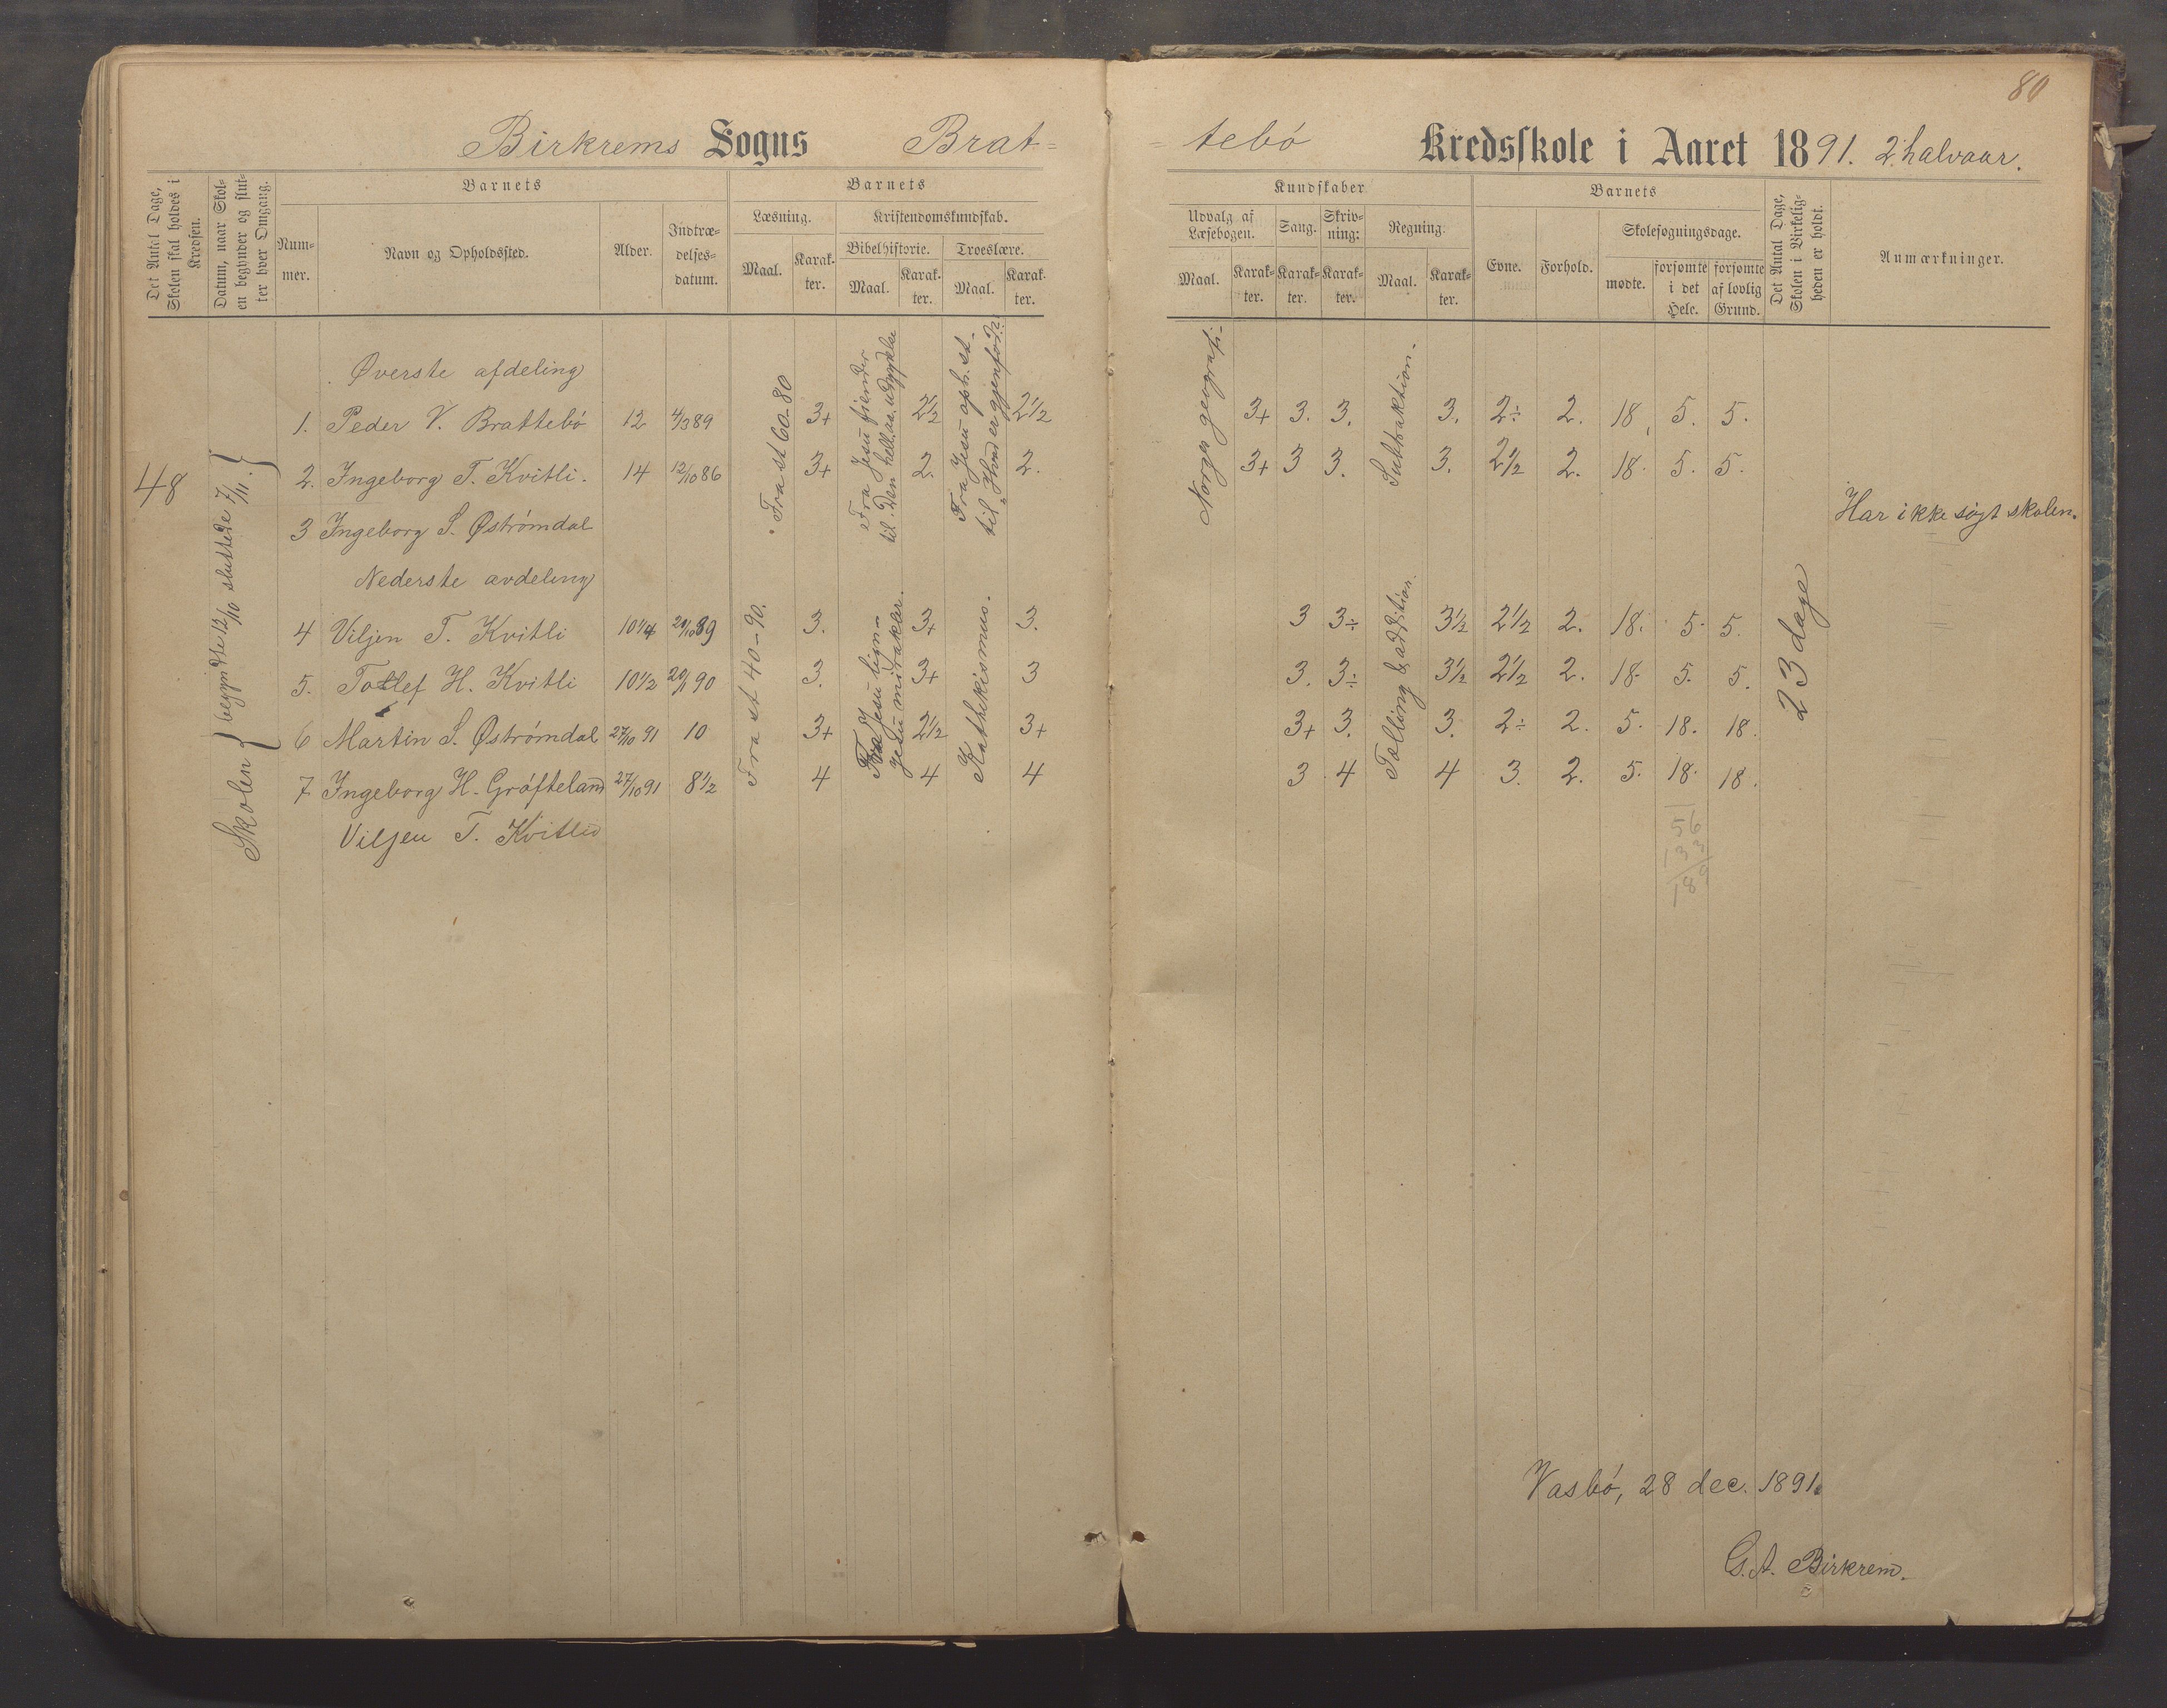 80
Birkrems Sogns Brat=
=tebö Kredsskole i Aaret 1891. 2. halvaar.
Det Antal Dage, Skolen skal holdes i Kredsen.
Datum, naar Skolen begynder og slutter hver Omgang.
Barnets
Nummer.
Navn og Opholdssted.
Alder.
Indtrædelsesdatum.
Barnets
Læsning.
Maal.
Karakter.
Kristendomskundskab.
Bibelhistorie.
Maal.
Karakter.
Troeslære.
Maal.
Karakter.
Kundskaber
Udvalg af Læsebogen.
Maal.
Karakter.
Sang.
Karakter.
Skrivning:
Karakter.
Regning.
Maal.
Karakter.
Barnets
Evne.
Forhold.
Skolesøgningsdage.
mødte.
forsømte i det Hele.
forsømte af lovlig Grund.
Det Antal Dage, Skolen i Virkeligheden er holdt.
Anmærkninger.
48
Skolen { begyndte 12/10 sluttede 7/11. }
Øverste afdeling
Fra st 60-80
Fra Jesu fiender
til Den hell. aa. udgydelse
Fra Jesu oph. st.
til "Hvad er gjenfød?"
Norges geografi
Subtraktion.
1. Peder V. Brattebö 12 4/3 89 3+ 2½ 2½ 3+ 3. 3. 3. 2÷ 2. 18. 5. 5.
2. Ingeborg T. Kvitli. 14 12/10 86 3+ 2. 2. 3+ 3 3. 3. 2½ 2. 18. 5. 5.
3 Ingeborg S. Øströmdal Har ikke sögt skolen.
Nederste avdeling
Fra st 40-90.
Fra Jesu lign-
Jesu mirakler.
Kathekismus.
Tælling & addition.
23 dage
4 Viljen T. Kvitli 10¼ 20/10 89 3. 3+ 3. 3 3÷ 3½ 2½ 2. 18. 5. 5.
5. Tollef H. Kvitli 10½ 20/1 90 3. 3+ 3 3. 3÷ 3½ 2½ 2. 18. 5. 5.
6 Martin S. Øströmdal 27/10 91 10 3+ 2½ 3+ 3+ 3. 3. 2÷ 2. 5. 18. 18.
7 Ingeborg H. Gröfteland 27/10 91 8½ 4 4 4 3 4 4 3. 2. 5. 18. 18.
Viljen T. Kvitli
56
133
189
Vasbö, 28 dec. 1891.
G. A. Birkrem.